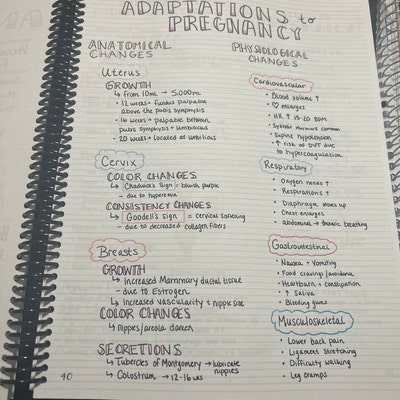 ADAPTATIONS to
PREGNANCY
ANATOMICAL
CHANGES
Uterus
GROWTH
↳ from 10mL → 5,000mL
• 12 weeks = fundus palpable
above the pubis symphysis
• 16 weeks = palpable between
pubis symphysis + umbilicus
• 20 weeks = located at umbilicus
Cervix
COLOR CHANGES
↳ Chadwick's Sign = bluish, purple
- due to hyperemia
CONSISTENCY CHANGES
↳ Goodell's sign = cervical softening
- due to decreased collagen fibers
Breasts
GROWTH
↳ Increased Mammary ductal tissue
- due to Estrogen
↳ Increased vascularity + nipple size
COLOR CHANGES
↳ nipples/areola darken
SECRETIONS
↳ Tubercles of Montgomery → lubricate
nipples
↳ Colostrum → 12-16 wks
40
PHYSIOLOGICAL
CHANGES
Cardiovascular
• Blood volume ↑
• ♡ enlarges
• HR ↑ 15-20 BPM
• Systolic murmurs common
• Supine hypotension
• ↑ risk of DVT due
to hypercoagulation
Respiratory
• Oxygen needs ↑
• Respirations ↑
• Diaphragm moves up
• Chest enlarges
• abdominal → thoracic breathing
Gastrointestinal
• Nausea + Vomiting
• Food cravings/avoidance
• Heartburn + constipation
• ↑ Saliva
• Bleeding gums
Musculoskeletal
• Lower back pain
• Ligament stretching
• Difficulty walking
• Leg cramps